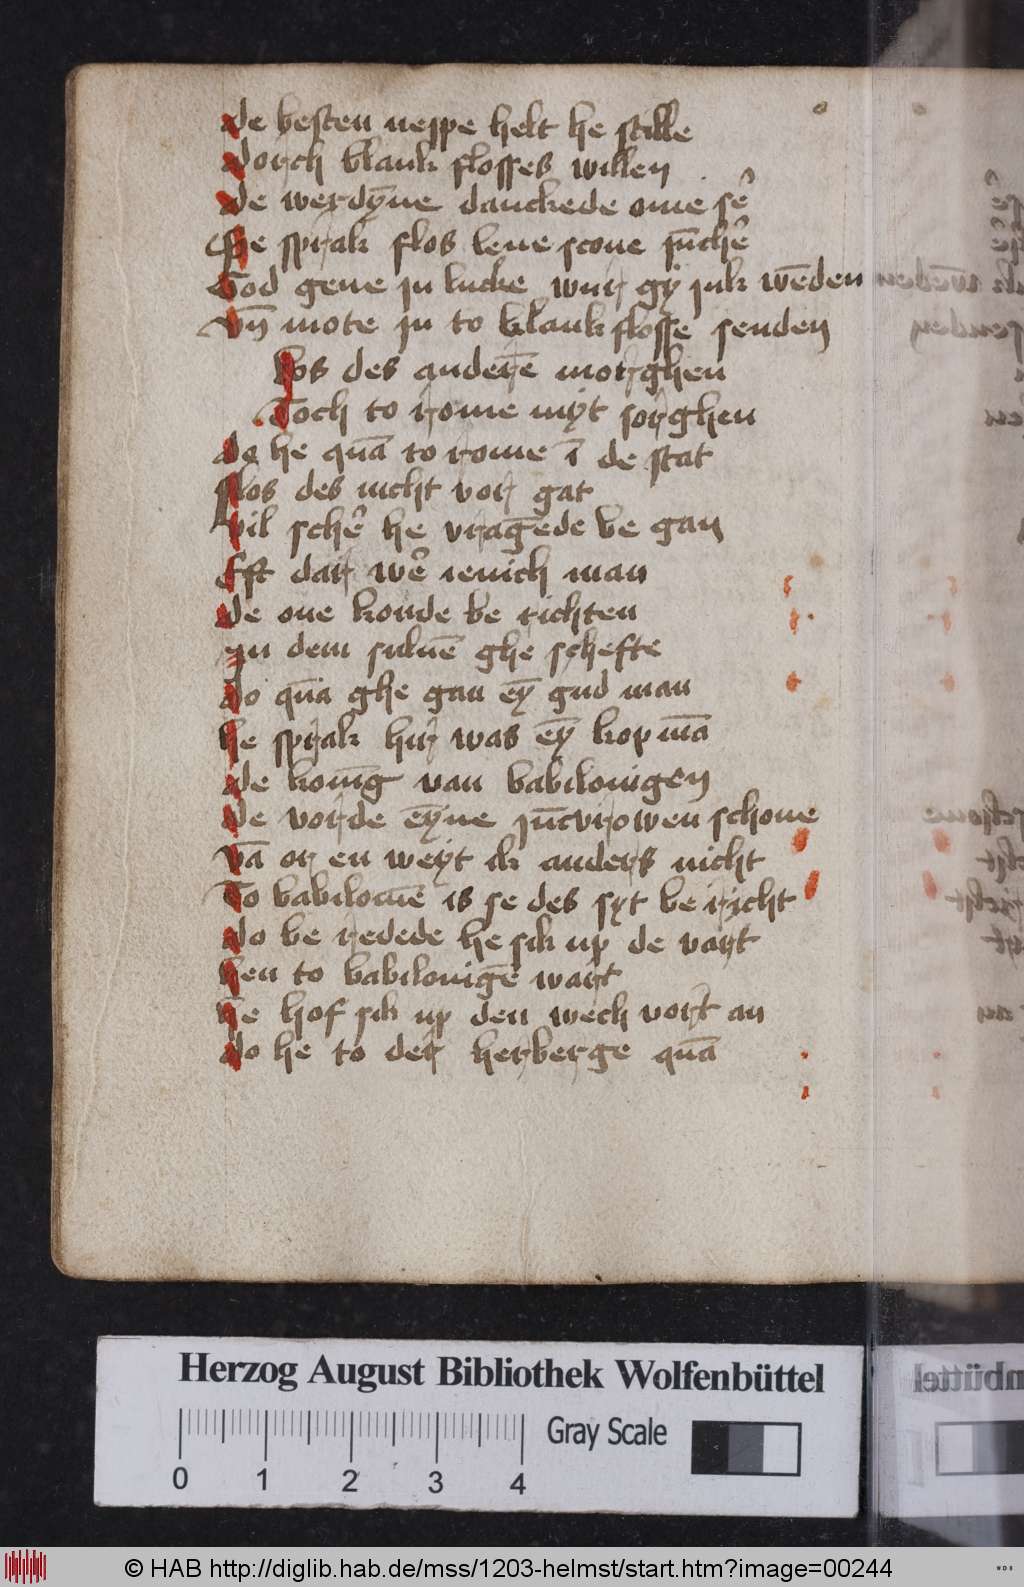 de besten neppe helt he stille
dorch blank flosses willen
de werdȳne danckede ome se᷑
Se sprak flos leue scone ju̅che᷑
God geue ju lucke wur gy juk wēden
Vn̄ mote ju to blank flosse senden
Flos des anderē morghen
Toch to rome myt sorghen
do he quā to rome ī de stat
flos des nicht vor gat
vil sche᷑ he vragēde be gan
Eft dar we᷑ ienich man
de one konde be richten
jn dem suluē ghe schefte
do qua̅ ghe gan ey̅ gud man
he sprak hir was ey̅ kop mā
de konīg van babilonigen
de vorde ēyne ju̅cvrowen schone
Vā or en weyt ik anders nicht
To babilonīe is se des syt be richt
do be redede he sik up de vart
hen to babilonigē wart
he hof sik up den wech vort an
do he to der herberge quā
Herzog August Bibliothek Wolfenbüttel
Gray Scale
0 1 2 3 4
© HAB http://diglib.hab.de/mss/1203-helmst/start.htm?image=00244